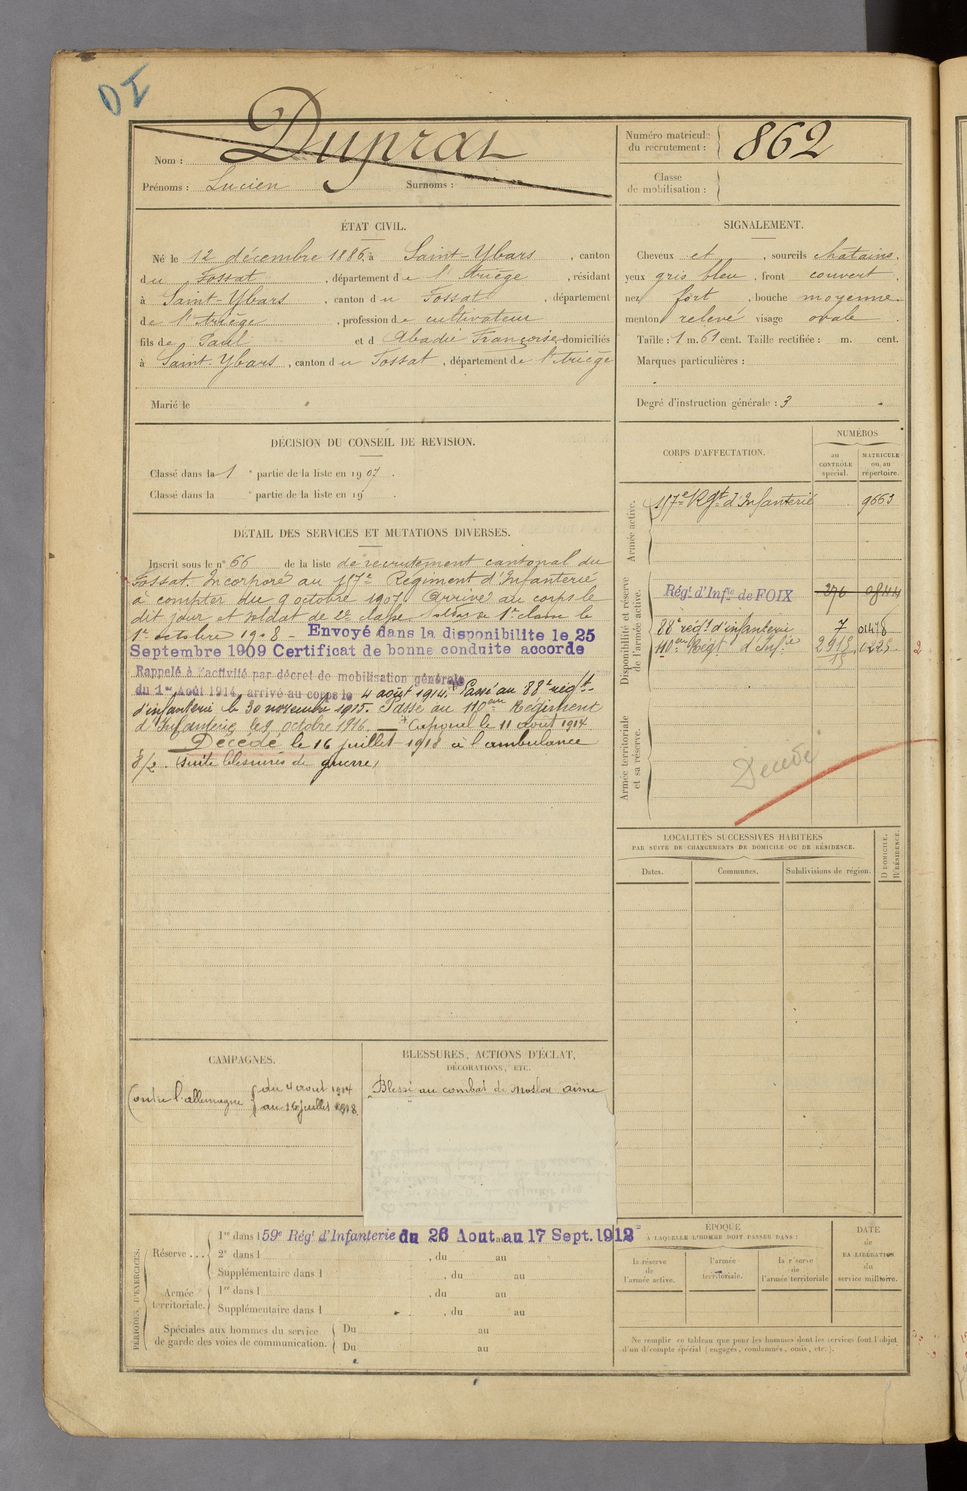 IO
Nom : Duprat
Prénoms : Lucien Surnoms :
Numéro matricule du recrutement : 862
Classe de mobilisation :
ÉTAT CIVIL.
Né le 12 décembre 1886, à Saint-Ybars, canton
du Fossat, département de l'Ariège, résidant
à Saint-Ybars, canton du Fossat, département
de l'Ariège, profession de cultivateur
fils de Paul et d Abadie Françoise domiciliés
à Saint-Ybars, canton du Fossat, département de l'Ariège
Marié le
SIGNALEMENT.
Cheveux et, sourcils chatains.
yeux gris bleu, front couvert
nez fort, bouche moyenne.
menton relevé visage ovale
Taille : 1 m. 61 cent. Taille rectifiée : m. cent.
Marques particulières :
Degré d'instruction générale : 3
DÉCISION DU CONSEIL DE REVISION.
Classé dans la 1e partie de la liste en 1907.
Classé dans la e partie de la liste en 19 .
DÉTAIL DES SERVICES ET MUTATIONS DIVERSES.
Inscrit sous le n° 66 de la liste de recrutement cantonal du
Fossat. Incorporé au 157e Régiment d'Infanterie
à compter du 9 octobre 1907. Arrivé au corps le
dit jour et soldat de 2e classe. Soldat de 1e classe le
1er octobre 1908 - Envoyé dans la disponibilite le 25
Septembre 1909 Certificat de bonne conduite accorde
Rappelé à l'activité par décret de mobilisation générale
du 1er Août 1914, arrivé au corps le 4 août 1914. Passé au 88e régt
d'infanterie le 30 novembre 1915. Passé au 110eme Régiment
d'Infanterie le 9 octobre 1916. Caporal le 11 août 1914
Décédé le 16 juillet 1918 à l'ambulance
8/2. (suite blessures de guerre)
CORPS D'AFFECTATION.
NUMÉROS
au CONTRÔLE spécial.
MATRICULE ou, au répertoire.
Armée active.
157e Rgt d'Infanterie 9663
Disponibilité et réserve de l'armée active.
Régt d'Infie de FOIX 276 0844
88e régt d'infanterie 7 01478
110eme Régt d'Infie
2
Armée territoriale et sa réserve.
Décédé
LOCALITÉS SUCCESSIVES HABITÉES
PAR SUITE DE CHANGEMENTS DE DOMICILE OU DE RÉSIDENCE.
Dates. Communes. Subdivisions de région. D DOMICILE. R RÉSIDENCE.
CAMPAGNES.
Contre l'allemagne du 4 aout 1914
au 16 juillet 1918.
BLESSURES, ACTIONS D'ÉCLAT,
DÉCORATIONS, ETC.
Blessé au combat de
PÉRIODES D'EXERCICES.
Réserve ... 1re dans l 59e Régt d'Infanterie du 26 Aout au 17 Sept. 1912
2e dans l , du au
Supplémentaire dans l , du au
Armée territoriale. 1re dans l , du au
Supplémentaire dans l , du au
Spéciales aux hommes du service de garde des voies de communication. Du au
Du au
ÉPOQUE
À LAQUELLE L'HOMME DOIT PASSER DANS :
la réserve de l'armée active.
l'armée territoriale.
la réserve de l'armée territoriale
DATE DE LA LIBÉRATION du service militaire.
Ne remplir ce tableau que pour les hommes dont les services font l'objet
d'un décompte spécial (engagés, condamnés, omis, etc.).